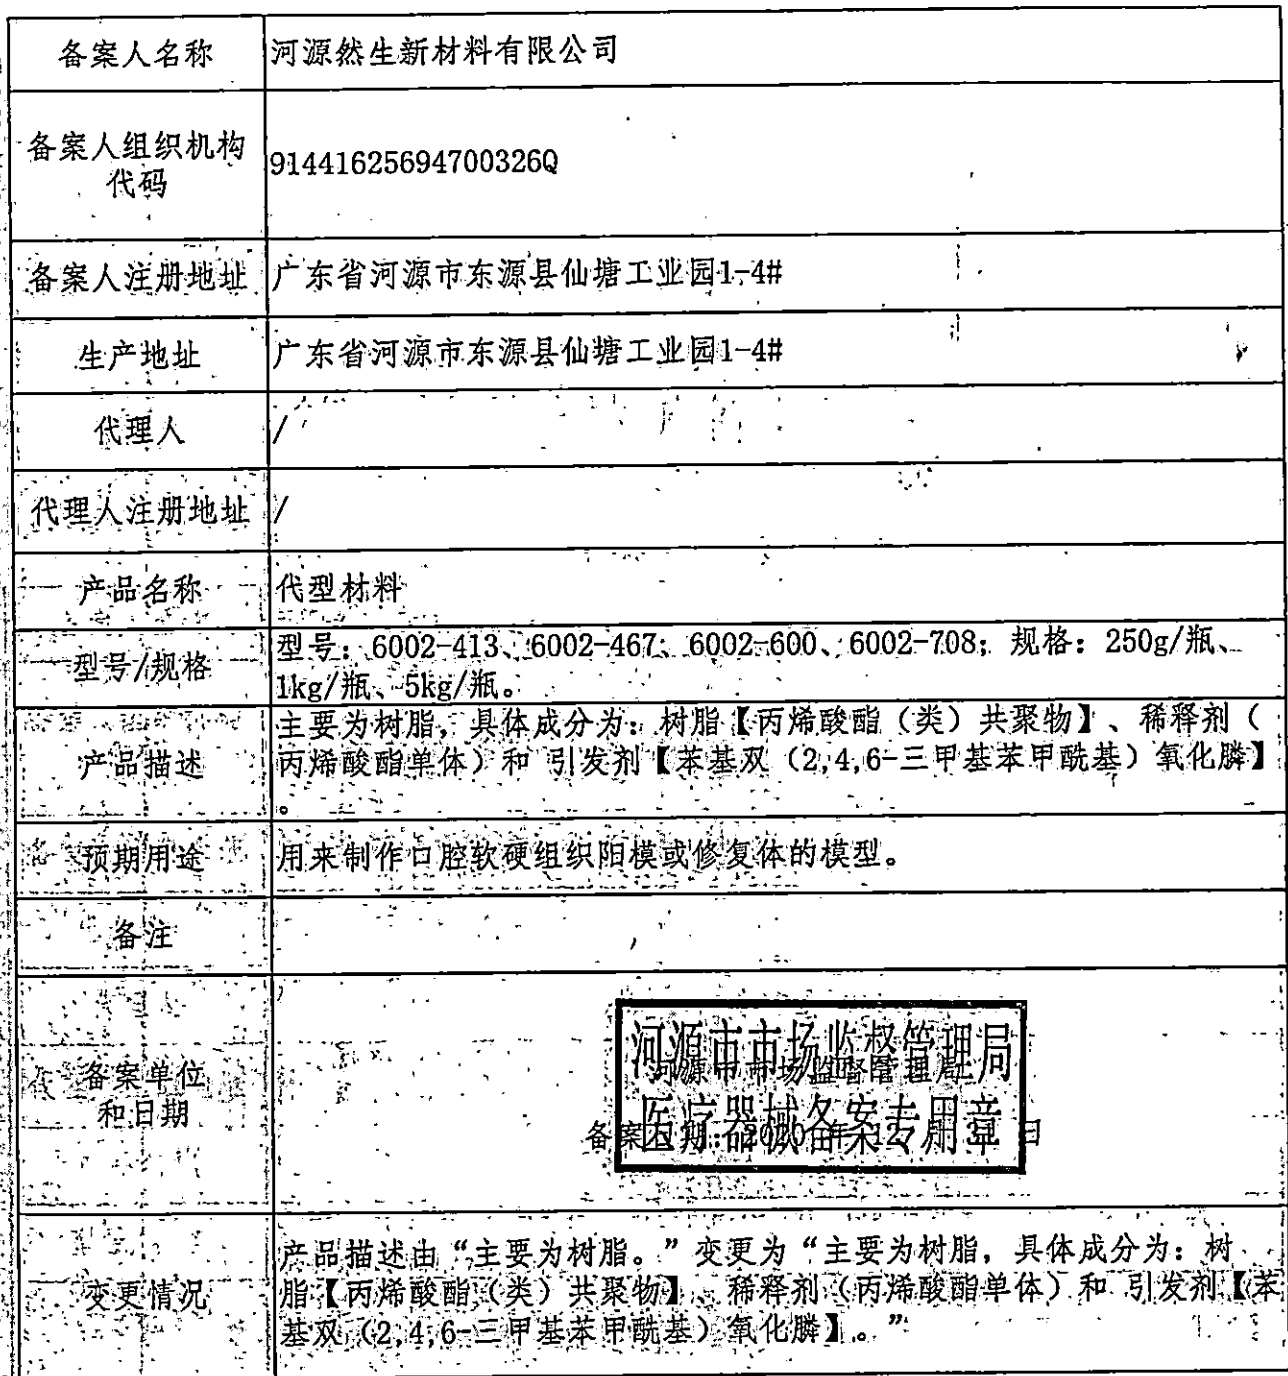 备案人名称
河源然生新材料有限公司
备案人组织机构
代码
91441625694700326Q
备案人注册地址
广东省河源市东源县仙塘工业园1-4#
生产地址
广东省河源市东源县仙塘工业园1-4#
代理人
/
代理人注册地址
/
产品名称
代型材料
型号/规格
型号：6002-413、6002-467、6002-600、6002-708；规格：250g/瓶、
1kg/瓶、5kg/瓶。
产品描述
主要为树脂，具体成分为：树脂【丙烯酸酯（类）共聚物】、稀释剂（
丙烯酸酯单体）和 引发剂【苯基双（2,4,6-三甲基苯甲酰基）氧化膦】
。
预期用途
用来制作口腔软硬组织阳模或修复体的模型。
备注
备案单位
和日期
河源市市场监督管理局
河源市市场监督管理局
医疗器械备案专用章
备案日期：2020 年 12 月 31 日
变更情况
产品描述由“主要为树脂。”变更为“主要为树脂，具体成分为：树
脂【丙烯酸酯（类）共聚物】、稀释剂（丙烯酸酯单体）和 引发剂【苯
基双（2,4,6-三甲基苯甲酰基）氧化膦】。”